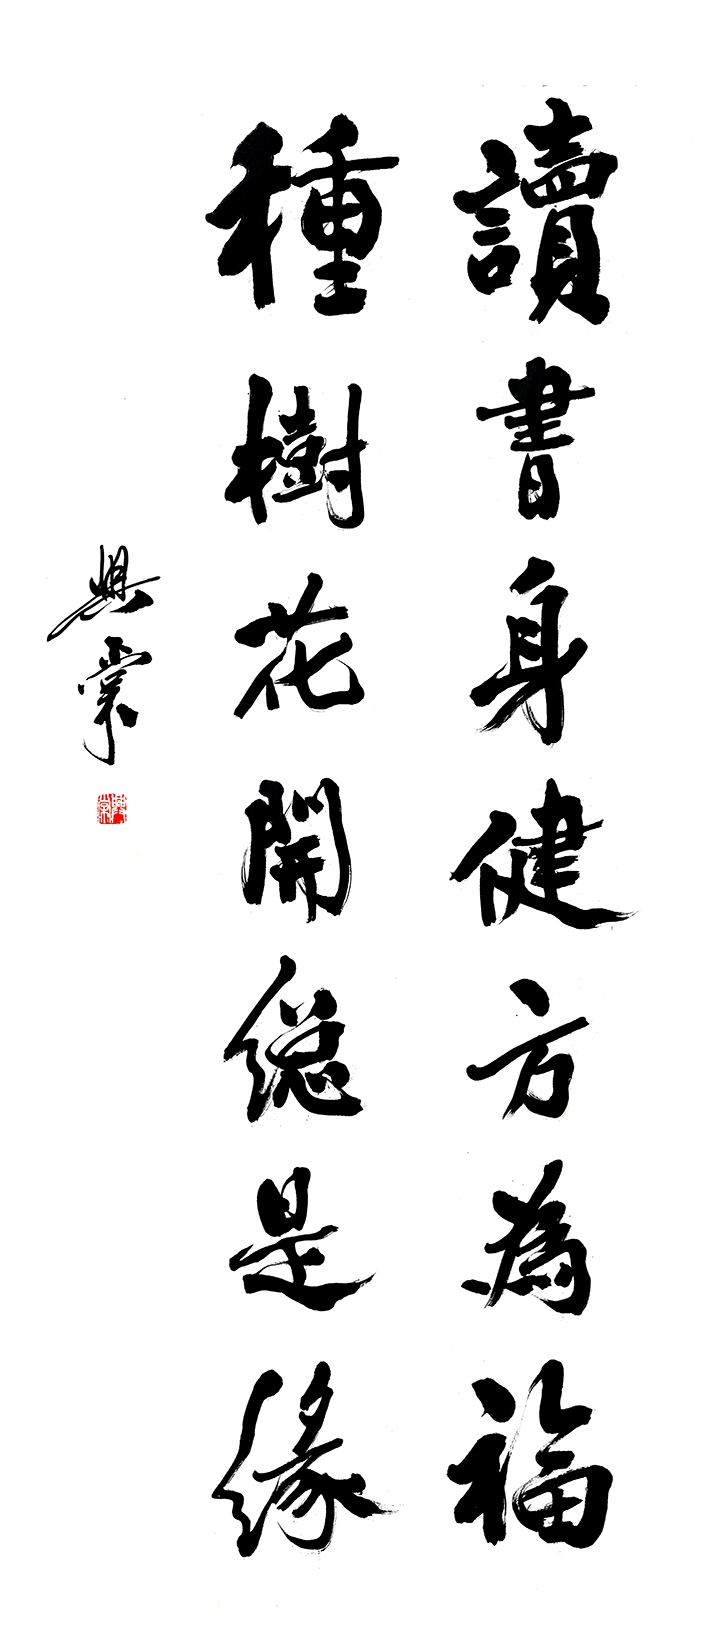 讀書身健方為福
種樹花開總是緣
興棠